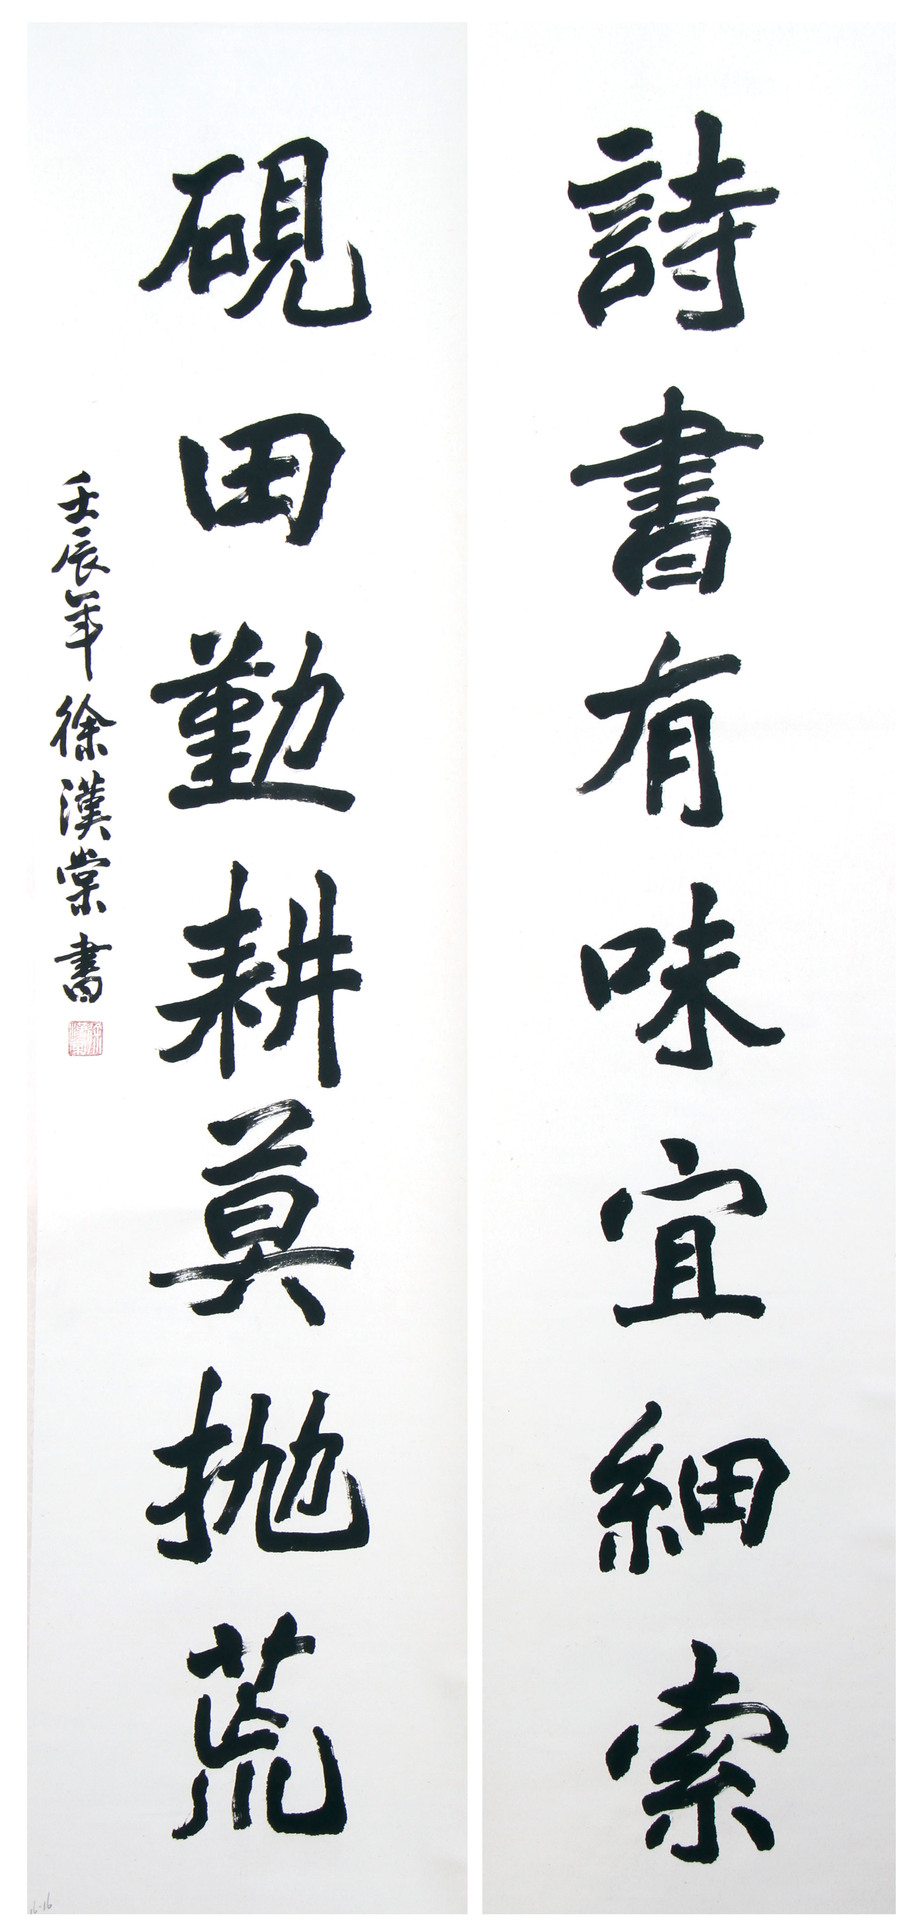 詩書有味宜細索
硯田勤耕莫拋荒
壬辰年徐漢棠書
16-16